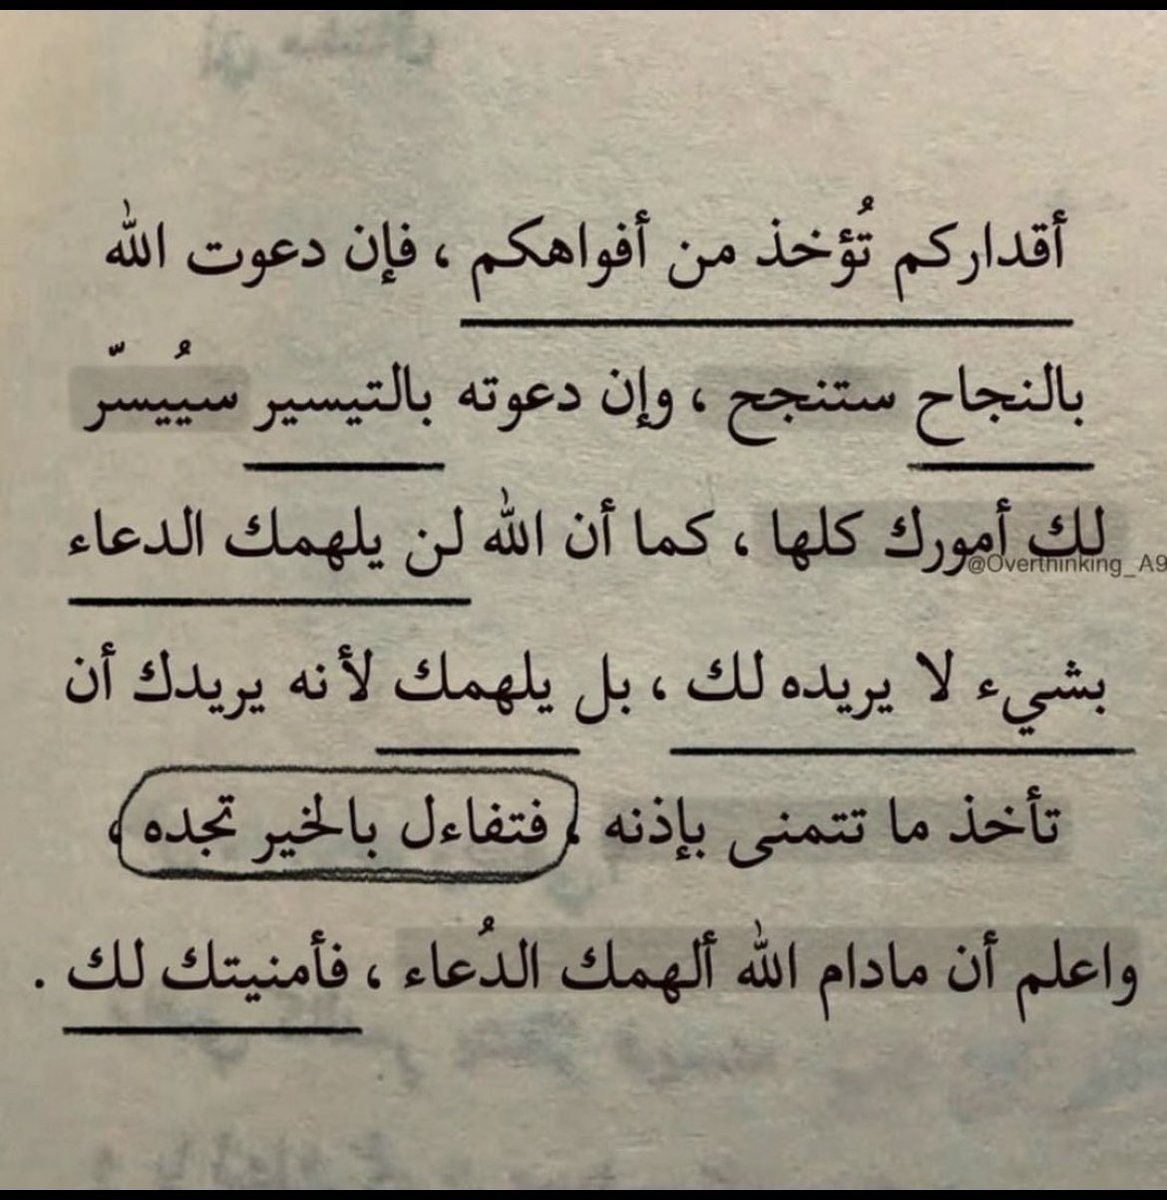 أقداركم تُؤخذ من أفواهكم ، فإن دعوت الله
بالنجاح ستنجح ، وإن دعوته بالتيسير سيُيسّر
لك أمورك كلها ، كما أن الله لن يلهمك الدعاء
@Overthinking_A9
بشيء لا يريده لك ، بل يلهمك لأنه يريدك أن
تأخذ ما تتمنى بإذنه ، فتفاءل بالخير تجده ،
واعلم أن مادام الله ألهمك الدُعاء ، فأمنيتك لك .